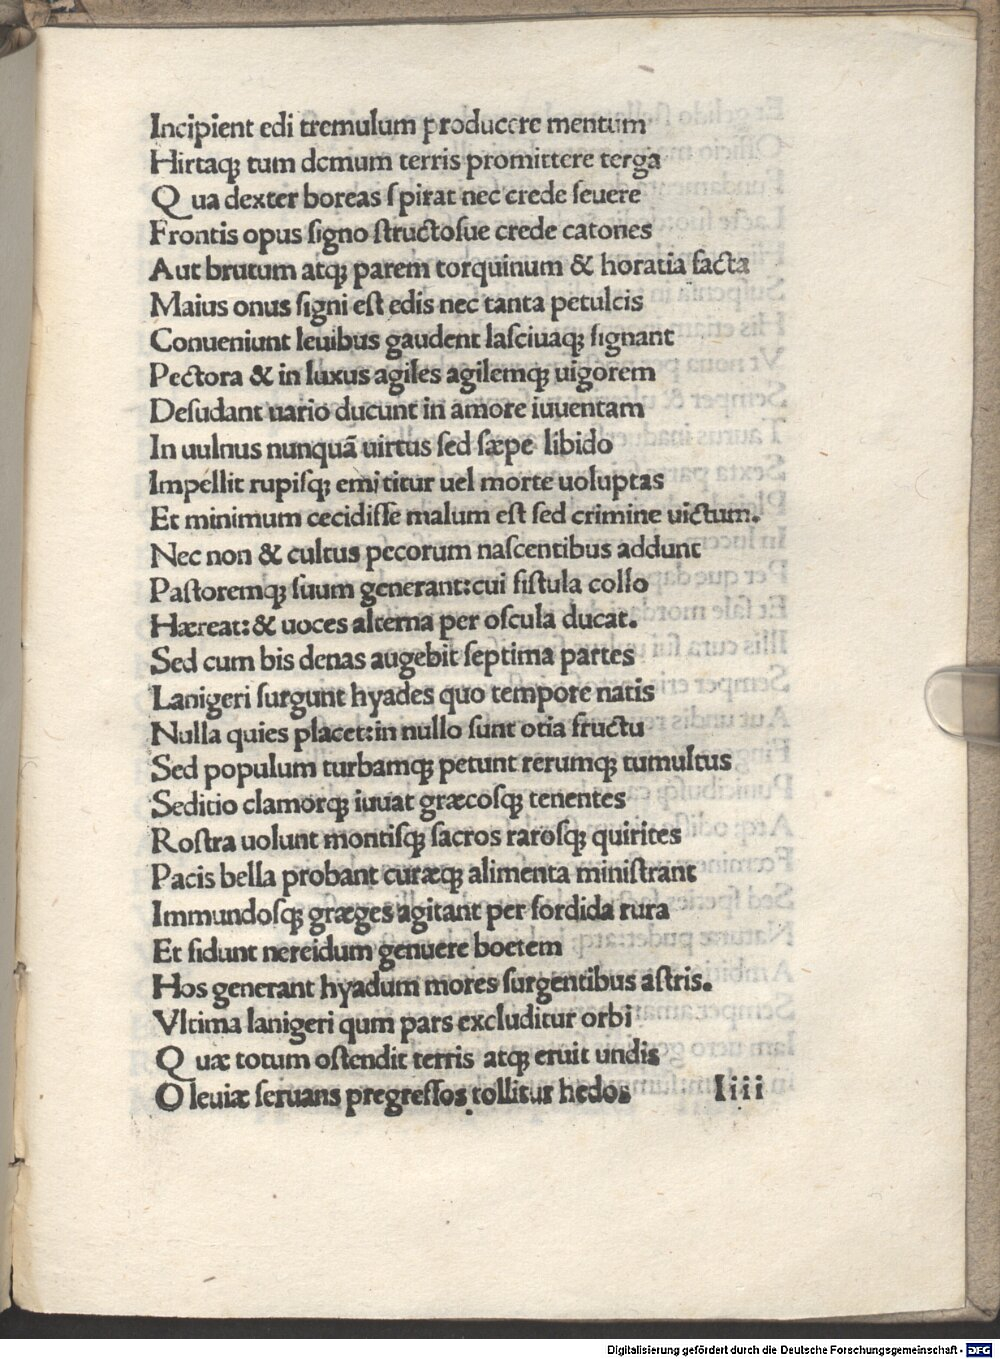 Incipient edi tremulum producere mentum
Hirtaqꝫ tum demum terris promittere terga
Q ua dexter boreas ſpirat nec crede ſeuere
Frontis opus ſigno ſtructoſue crede catones
Aut brutum atqꝫ parem torquinum & horatia facta
Maius onus ſigni eſt edis nec tanta petulcis
Conueniunt leuibus gaudent laſciuaqꝫ ſignant
Pectora & in luxus agiles agilemqꝫ uigorem
Deſudant uario ducunt in amore iuuentam
In uulnus nunquā uirtus ſed ſæpe libido
Impellit rupiſqꝫ emititur uel morte uoluptas
Et minimum cecidiſſe malum eſt ſed crimine uictum.
Nec non & cultus pecorum naſcentibus addunt
Paſtoremqꝫ ſuum generant:cui fiſtula collo
Hæreat:& uoces alterna per oſcula ducat.
Sed cum bis denas augebit ſeptima partes
Lanigeri ſurgunt hyades quo tempore natis
Nulla quies placet:in nullo ſunt otia fructu
Sed populum turbamqꝫ petunt rerumqꝫ tumultus
Seditio clamorqꝫ iuuat græcoſqꝫ tenentes
Roſtra uolunt montiſqꝫ ſacros raroſqꝫ quirites
Pacis bella probant curæqꝫ alimenta miniſtrant
Immundoſqꝫ græges agitant per ſordida rura
Et fidunt nereidum genuere boetem
Hos generant hyadum mores ſurgentibus aſtris.
Vltima lanigeri qum pars excluditur orbi
Q uæ totum oſtendit terris atqꝫ eruit undis
O leuiæ ſeruans pregreſſos tollitur hedos Iiii
Digitalisierung gefördert durch die Deutsche Forschungsgemeinschaft - DFG